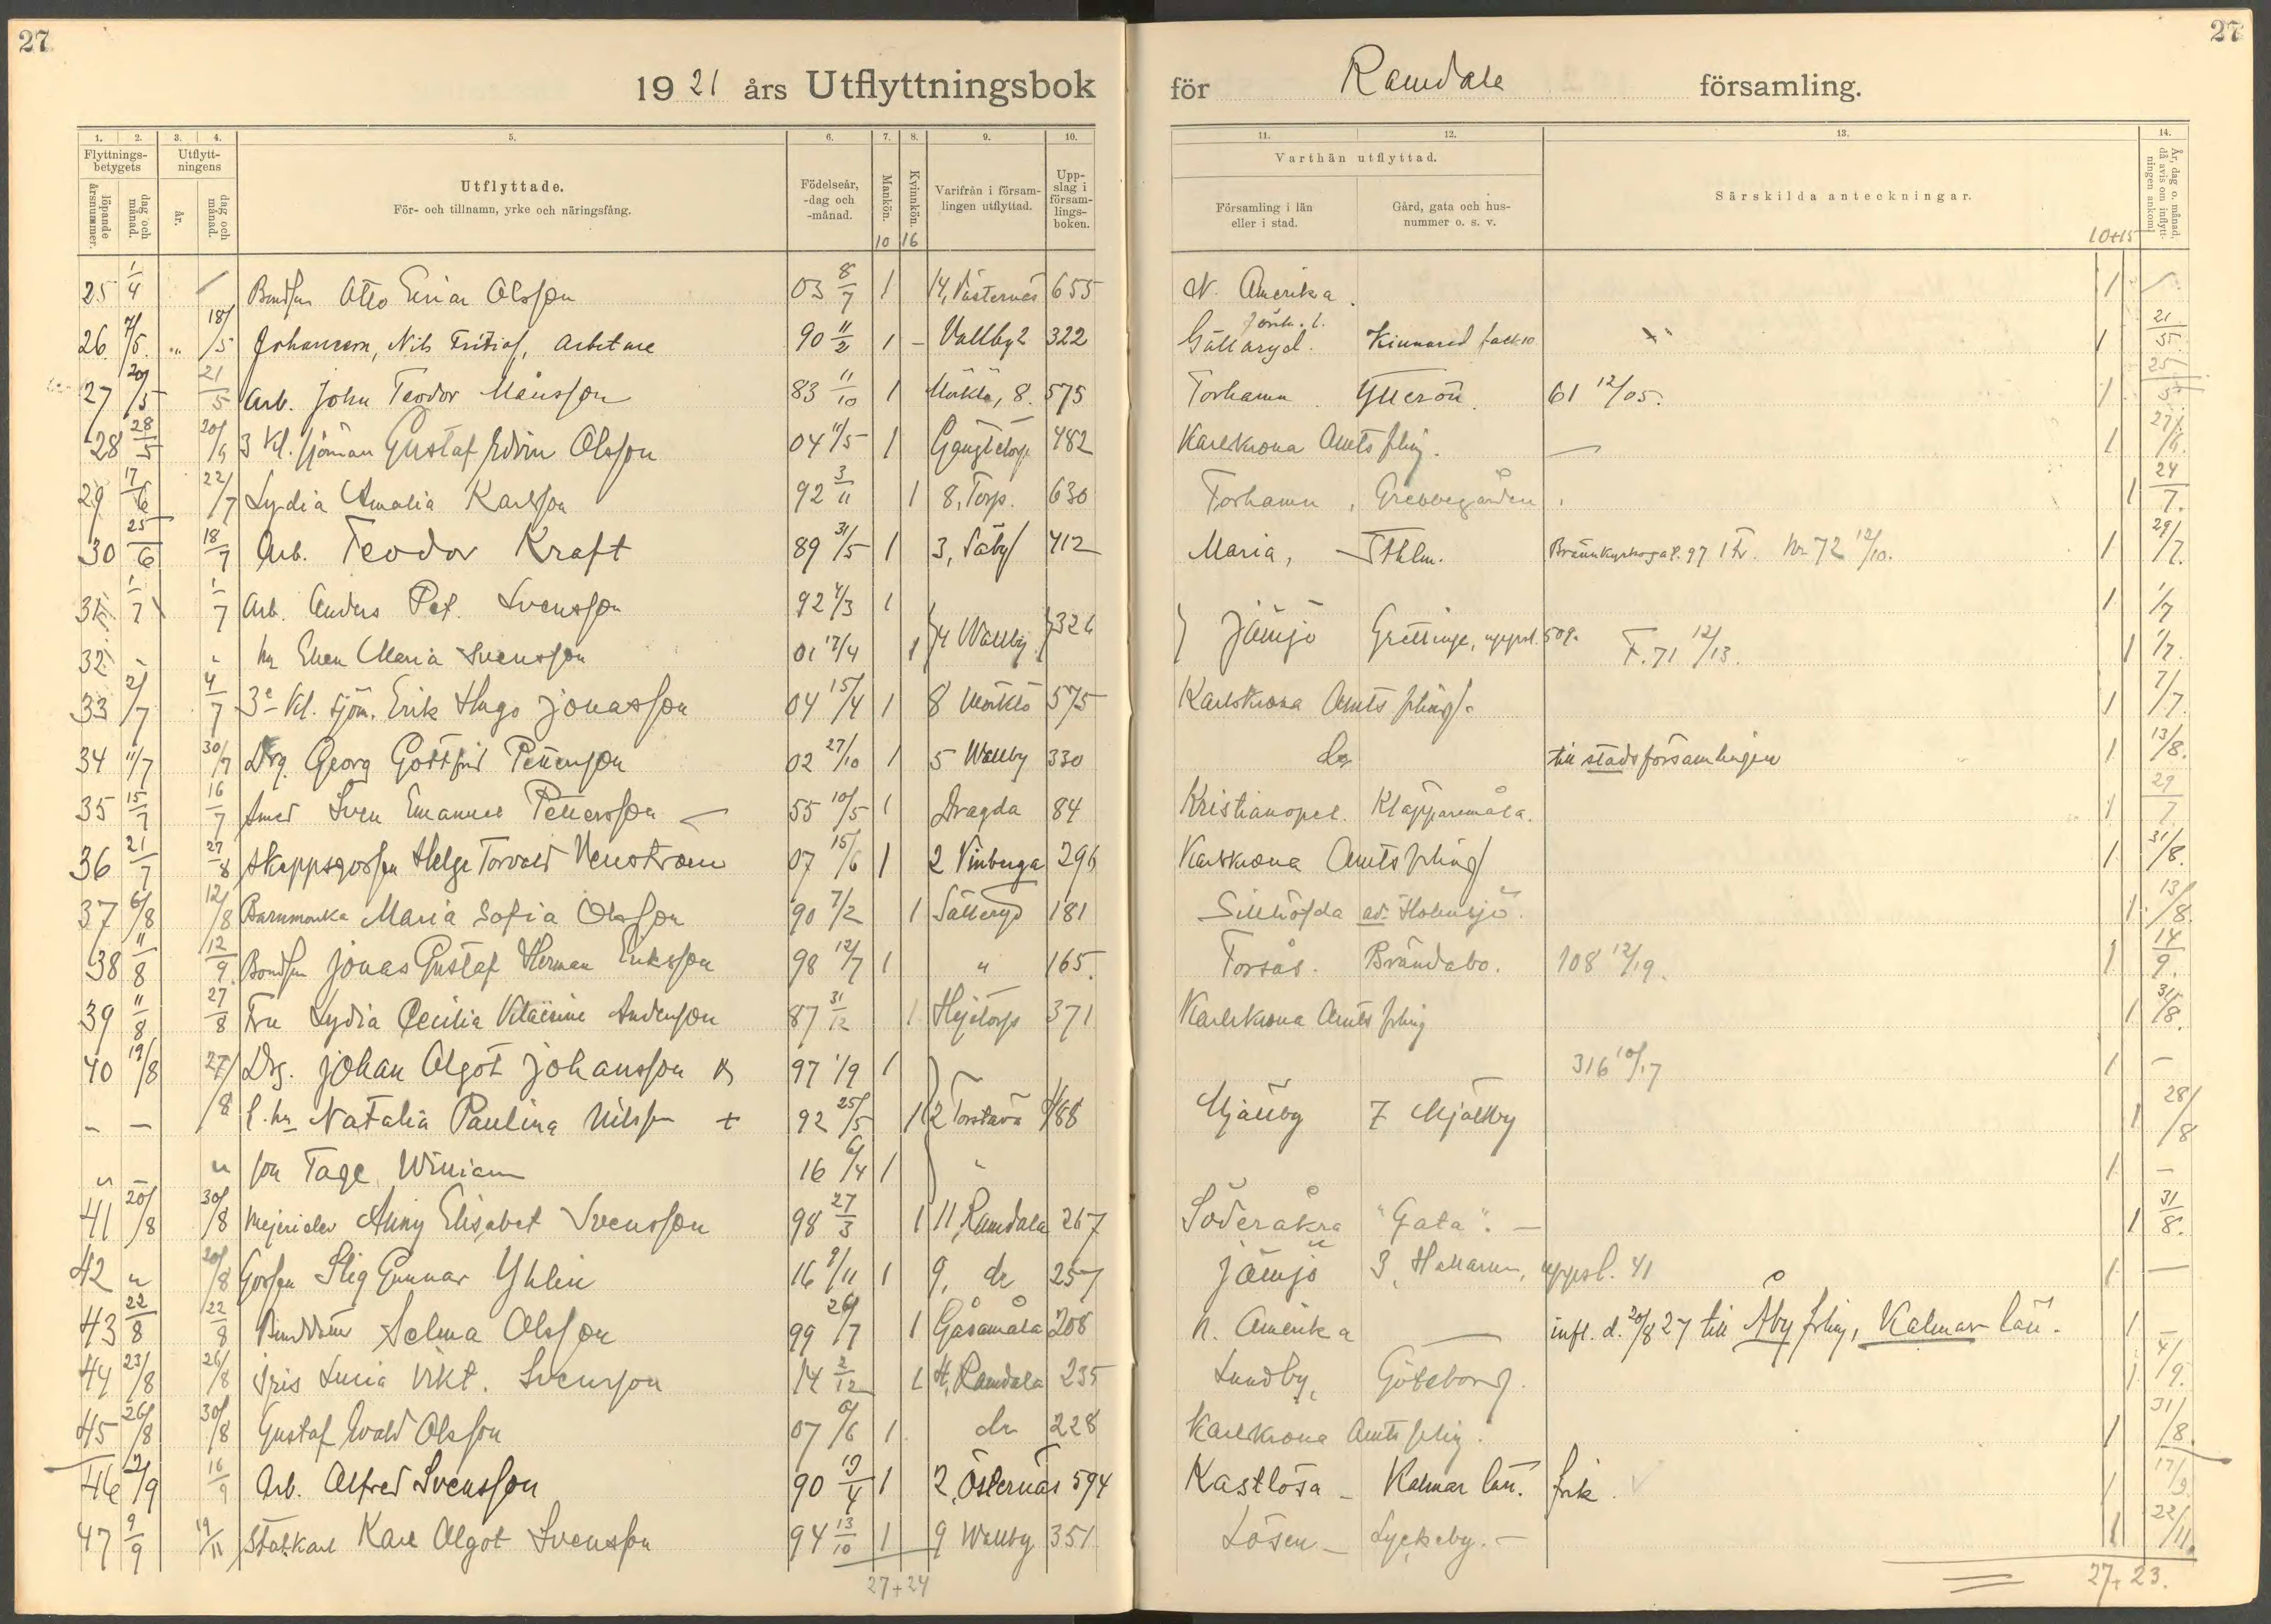 27
27
19 21 års Utflyttningsbok
för Ramdala församling.
1. 2. 3. 4. 5. 6. 7. 8. 9. 10.
11. 12. 13. 14.
Flyttnings-betygets
löpande årsnummer.
dag och månad.
Utflytt-ningens
år.
dag och månad.
Utflyttade.
För- och tillnamn, yrke och näringsfång.
Födelseår, -dag och -månad.
Mankön.
Kvinnkön.
10 16
Varifrån i försam-lingen utflyttad.
Upp-slag i försam-lings-boken.
Varthän utflyttad.
Församling i län eller i stad.
Gård, gata och hus-nummer o. s. v.
Särskilda anteckningar.
10+15
År, dag o. månad, då avis om inflytt-ningen ankom!
25 1/4 Bondson Otto Einar Olsson 03 8/7 1 14, Västernäs 655 N. Amerika. 1
26 7/5 " 18/5 Johansson, Nils Fritiof, arbetare 90 11/2 1 - Vallby 2 322 Gällaryd. Jönk. l. Kinnared 1 21/5
27 20/5 21/5 Arb. John Teodor Månsson 83 11/10 1 Möcklö, 8. 575 Torhamn. Ytterön. 61 12/05. 1 25/5
28 28/5 20/6 3 kl. sjöman Gustaf Edvin Olsson 04 11/5 1 Gängletorp 482 Karlskrona Amts flng. — 1 27/6.
29 17/6 22/7 Lydia Amalia Karlsson 92 3/11 1 8, Torp. 630 Torhamn, Grebbegården 1 24/7.
30 25/6 18/7 Arb. Teodor Kraft 89 31/5 1 3, Säby 412 Maria, Sthlm. Brännkyrkogat. 97 1 tr. Nr 72 12/10. 1 29/7.
31 1/7 1/7 Arb. Anders Pet. Svensson 92 4/3 1 } 4 Wallby } 326 } Jämjö Grettinge, uppsl. 509. 1 1/7
32 " " h. Ellen Maria Svensson 01 17/4 1 F. 71 12/13. 1 1/7.
33 2/7 4/7 3e kl. sjöm. Erik Hugo Jonasson 04 15/4 1 8 Möcklö 575 Karlskrona Amts flng. 1 7/7.
34 11/7 30/7 Drg. Georg Gottfrid Petterson 02 27/10 1 5 Wallby 330 do till stadsförsamlingen 1 13/8.
35 15/7 16/7 Sven Emanuel Pettersson 55 10/5 1 Dragda 84 Kristianopel. Kläpparemåla. 1 29/7
36 21/7 27/8 Skeppsgossen Helge Torvald Venström 07 15/6 1 2 Vinberga 296 Karlskrona Amts flng 1 31/8.
37 6/8 12/8 Barnmorska Maria Sofia Olsson 90 7/2 1 Sälleryd 181 Sillhöfda ad. Holmsjö. 1 13/8.
38 11/8 12/9 Bondson Jonas Gustaf Herman Eriksson 98 12/7 1 " 165. Torsås. Brändabo. 108 12/19. 1 14/9.
39 11/8 27/8 Fru Lydia Cecilia Andersson 87 31/12 1 Hejetorp 371 Karlskrona Amts flng 1 31/8.
40 19/8 27/8 Drg. Johan Algot Johansson 97 1/9 1 } 316 10/17 1 -
- - h. Natalia Paulina Nilsson + 92 25/5 1 2 Torstäva 488 Mjällby 7 Mjällby 1 28/8
" - " son Tage William 16 6/4 1 " 1 -
41 20/8 30/8 Mejerielev Anny Elisabet Svensson 98 27/3 1 11, Ramdala 267 Söderåkra "Gata". — 1 31/8.
42 " 20/8 Gossen Stig Gunnar Yhlin 16 9/11 1 9, do 257 Jämjö 3, Hallarum, uppsl. 41 1 —
43 22/8 22/8 Selma Olsson 99 26/7 1 Gåsamåla 208 N. Amerika — infl. d. 20/8 27 till Åby flng, Kalmar län. 1 -
44 23/8 26/8 Iris Lucia Vikt. Svenson 14 2/12 1 4, Ramdala 235 Lundby, Göteborg. 1 4/9.
45 26/8 30/8 Gustaf Evald Olsson 07 6/6 1 do 228 Karlskrona Amts flng. 1 31/8.
46 2/9 16/9 Arb. Alfred Svensson 90 19/4 1 2, Östernäs 594 Kastlösa - Kalmar län. frik. 1 17/9.
47 9/9 19/11 Statkarl Karl Algot Svensson 94 13/10 1 9 Wallby 351 Lösen - Lyckeby. - 1 22/11.
27+24
27+23.